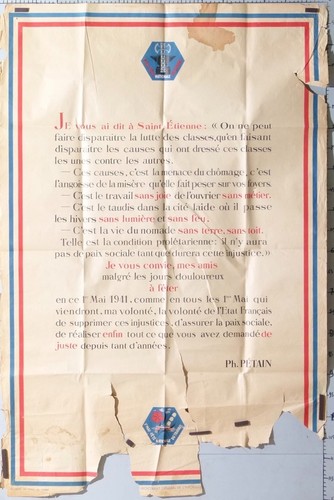 JE vous ai dit à Saint Étienne : « On ne peut
faire disparaître la lutte des classes, qu'en faisant
disparaître les causes qui ont dressé ces classes
les unes contre les autres.
— Ces causes, c'est la menace du chômage, c'est
l'angoisse de la misère qu'elle fait peser sur vos foyers.
— C'est le travail sans joie de l'ouvrier sans métier.
— C'est le taudis dans la cité laide où il passe
les hivers sans lumière et sans feu.
— C'est la vie du nomade sans terre, sans toit.
Telle est la condition prolétarienne : il n'y aura
pas de paix sociale tant que durera cette injustice. »
Je vous convie, mes amis
malgré les jours douloureux
à fêter
en ce 1er Mai 1941, comme en tous les 1er Mai qui
viendront, ma volonté, la volonté de l'Etat Français
de supprimer ces injustices, d'assurer la paix sociale,
de réaliser enfin tout ce que vous avez demandé de
juste depuis tant d'années.
Ph. PÉTAIN